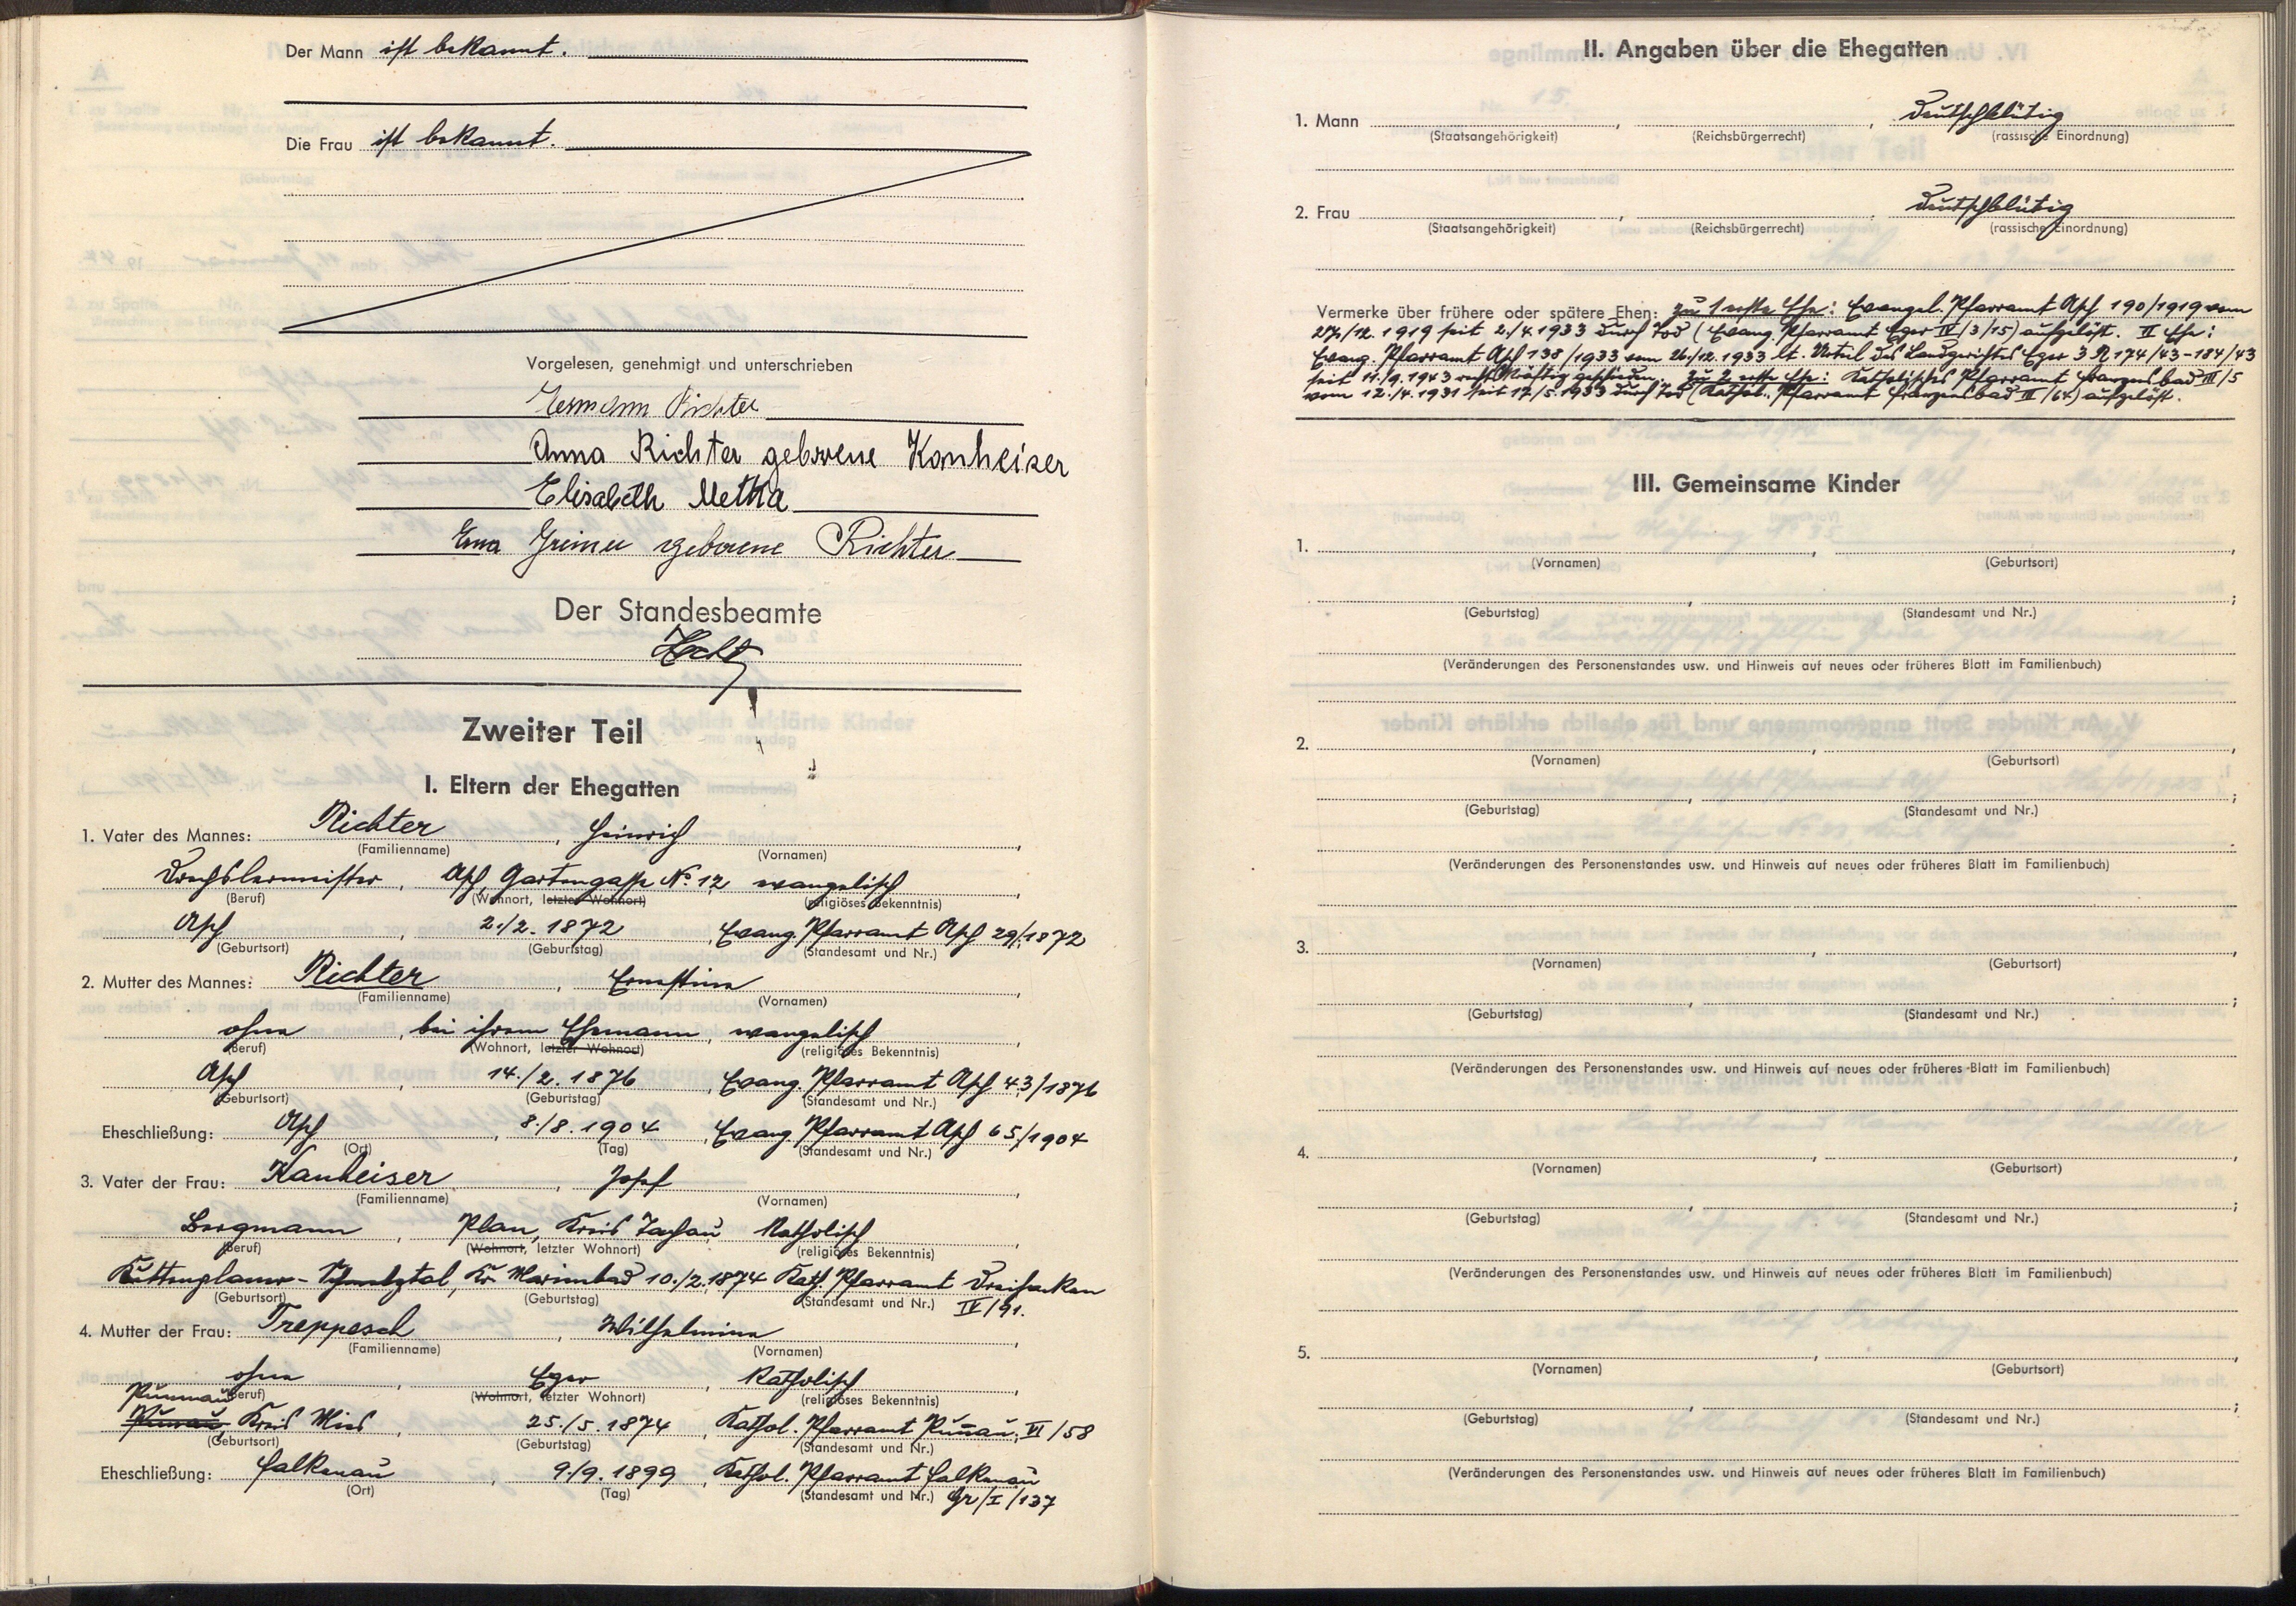 Der Mann ist bekannt.
Die Frau ist bekannt.
Vorgelesen, genehmigt und unterschrieben
Hermann Richter
Anna Richter geborene Kanheiser
Elisabeth Metka
Erna Greiner geborene Richter
Der Standesbeamte
Zweiter Teil
I. Eltern der Ehegatten
1. Vater des Mannes: Richter, Heinrich,
(Familienname) (Vornamen)
Drechslermeister, Asch, Gartengasse No. 12, evangelisch,
(Beruf) (Wohnort, letzter Wohnort) (religiöses Bekenntnis)
Asch, 2./2. 1872, Evang. Pfarramt Asch 29/1872
(Geburtsort) (Geburtstag) (Standesamt und Nr.)
2. Mutter des Mannes: Richter, Ernestine,
(Familienname) (Vornamen)
ohne, bei ihrem Ehemann, evangelisch,
(Beruf) (Wohnort, letzter Wohnort) (religiöses Bekenntnis)
Asch, 14./2. 1876, Evang. Pfarramt Asch 43/1876
(Geburtsort) (Geburtstag) (Standesamt und Nr.)
Eheschließung: Asch, 8./8. 1904, Evang. Pfarramt Asch 65/1904
(Ort) (Tag) (Standesamt und Nr.)
3. Vater der Frau: Kanheiser, Josef,
(Familienname) (Vornamen)
Bergmann, Plan, Kreis Tachau, katholisch,
(Beruf) (Wohnort, letzter Wohnort) (religiöses Bekenntnis)
Kuttenplaner-Schmelztal, Kr. Marienbad 10./2. 1874 Kath. Pfarramt Dreihacken
(Geburtsort) (Geburtstag) (Standesamt und Nr.) IV/91.
4. Mutter der Frau: Treppesch, Wilhelmine,
(Familienname) (Vornamen)
ohne, Eger, katholisch,
(Beruf) (Wohnort, letzter Wohnort) (religiöses Bekenntnis)
Kreis Mies, 25./5. 1874, Kathol. Pfarramt VI/58
(Geburtsort) (Geburtstag) (Standesamt und Nr.)
Eheschließung: Falkenau, 9./9. 1899, Kathol. Pfarramt Falkenau
(Ort) (Tag) (Standesamt und Nr.) Gr/I/137
II. Angaben über die Ehegatten
1. Mann , , deutschblütig
(Staatsangehörigkeit) (Reichsbürgerrecht) (rassische Einordnung)
2. Frau , , deutschblütig
(Staatsangehörigkeit) (Reichsbürgerrecht) (rassische Einordnung)
Vermerke über frühere oder spätere Ehen: zu 1 erste Ehe: Evangel. Pfarramt Asch 190/1919 vom
12. 1919 seit 2./4. 1933 durch Tod (Evang. Pfarramt Eger IV/3/15) aufgelöst. II Ehe:
Evang. Pfarramt Asch 138/1933 vom 26./12. 1933 lt. Urteil des Landgerichtes Eger 3 R 174/43-184/43
seit 11./9. 1943 rechtskräftig geschieden. zu 2 erste Ehe: Katholisches Pfarramt Franzensbad III/5
vom 12./4. 1931 seit 17/5. 1933 durch Tod (Kathol. Pfarramt Franzensbad III/64) aufgelöst.
III. Gemeinsame Kinder
1. , ,
(Vornamen) (Geburtsort)
, ;
(Geburtstag) (Standesamt und Nr.)
(Veränderungen des Personenstandes usw. und Hinweis auf neues oder früheres Blatt im Familienbuch)
2. , ,
(Vornamen) (Geburtsort)
, ;
(Geburtstag) (Standesamt und Nr.)
(Veränderungen des Personenstandes usw. und Hinweis auf neues oder früheres Blatt im Familienbuch)
3. , ,
(Vornamen) (Geburtsort)
, ;
(Geburtstag) (Standesamt und Nr.)
(Veränderungen des Personenstandes usw. und Hinweis auf neues oder früheres Blatt im Familienbuch)
4. , ,
(Vornamen) (Geburtsort)
, ;
(Geburtstag) (Standesamt und Nr.)
(Veränderungen des Personenstandes usw. und Hinweis auf neues oder früheres Blatt im Familienbuch)
5. , ,
(Vornamen) (Geburtsort)
, ;
(Geburtstag) (Standesamt und Nr.)
(Veränderungen des Personenstandes usw. und Hinweis auf neues oder früheres Blatt im Familienbuch)